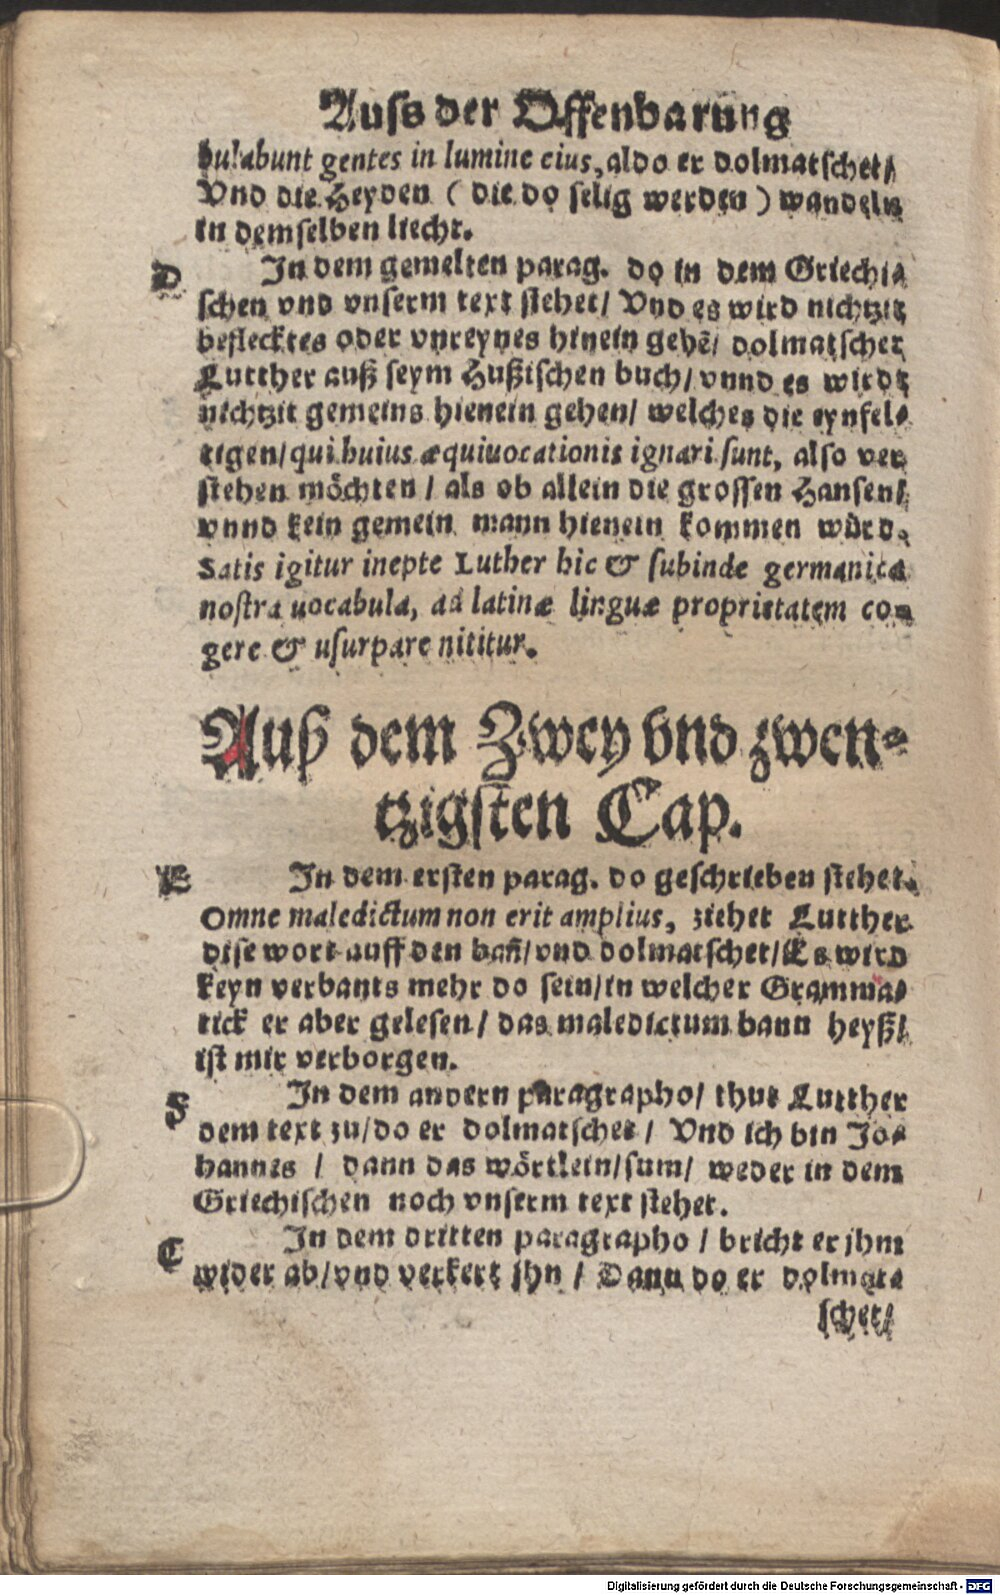 Auss der Offenbarung
bulabunt gentes in lumine eius, aldo er dolmatschet/
Vnd die Heyden ( die do selig werden ) wandeln
in demselben liecht.
D In dem gemelten parag. do in dem Griechi⸗
schen vnd vnserm text stehet/ Vnd es wird nichtzit
beflecktes oder vnreynes hinein gehē/ dolmatschet
Lutther auß seym Hußischen buch/ vnnd es wirdt
nichtzit gemeins hienein gehen/ welches die eynfel⸗
tigen/ qui huius æquiuocationis ignari sunt, also ver
stehen möchten / als ob allein die grossen Hansen/
vnnd kein gemein mann hienein kommen würd.
Satis igitur inepte Luther hic & subinde germanica
nostra uocabula, ad latinæ linguæ proprietatem co⸗
gere & usurpare nititur.
Auß dem Zwey vnd zwen⸗
tzigsten Cap.
E In dem ersten parag. do geschrieben stehet.
Omne maledictum non erit amplius, ziehet Lutther
dise wort auff den bañ/ vnd dolmatschet/ Es wird
keyn verbants mehr do sein/ in welcher Gramma⸗
tick er aber gelesen / das maledictum bann heyß/
ist mir verborgen.
F In dem andern paragrapho/ thut Lutther
dem text zu/ do er dolmatschet / Vnd ich bin Jo⸗
hannes / dann das wörtlein/ sum/ weder in dem
Griechischen noch vnserm text stehet.
C In dem dritten paragrapho / bricht er jhm
wider ab/ vnd verkert jhn / Dann do er dolmat⸗
schet/
Digitalisierung gefördert durch die Deutsche Forschungsgemeinschaft - DFG